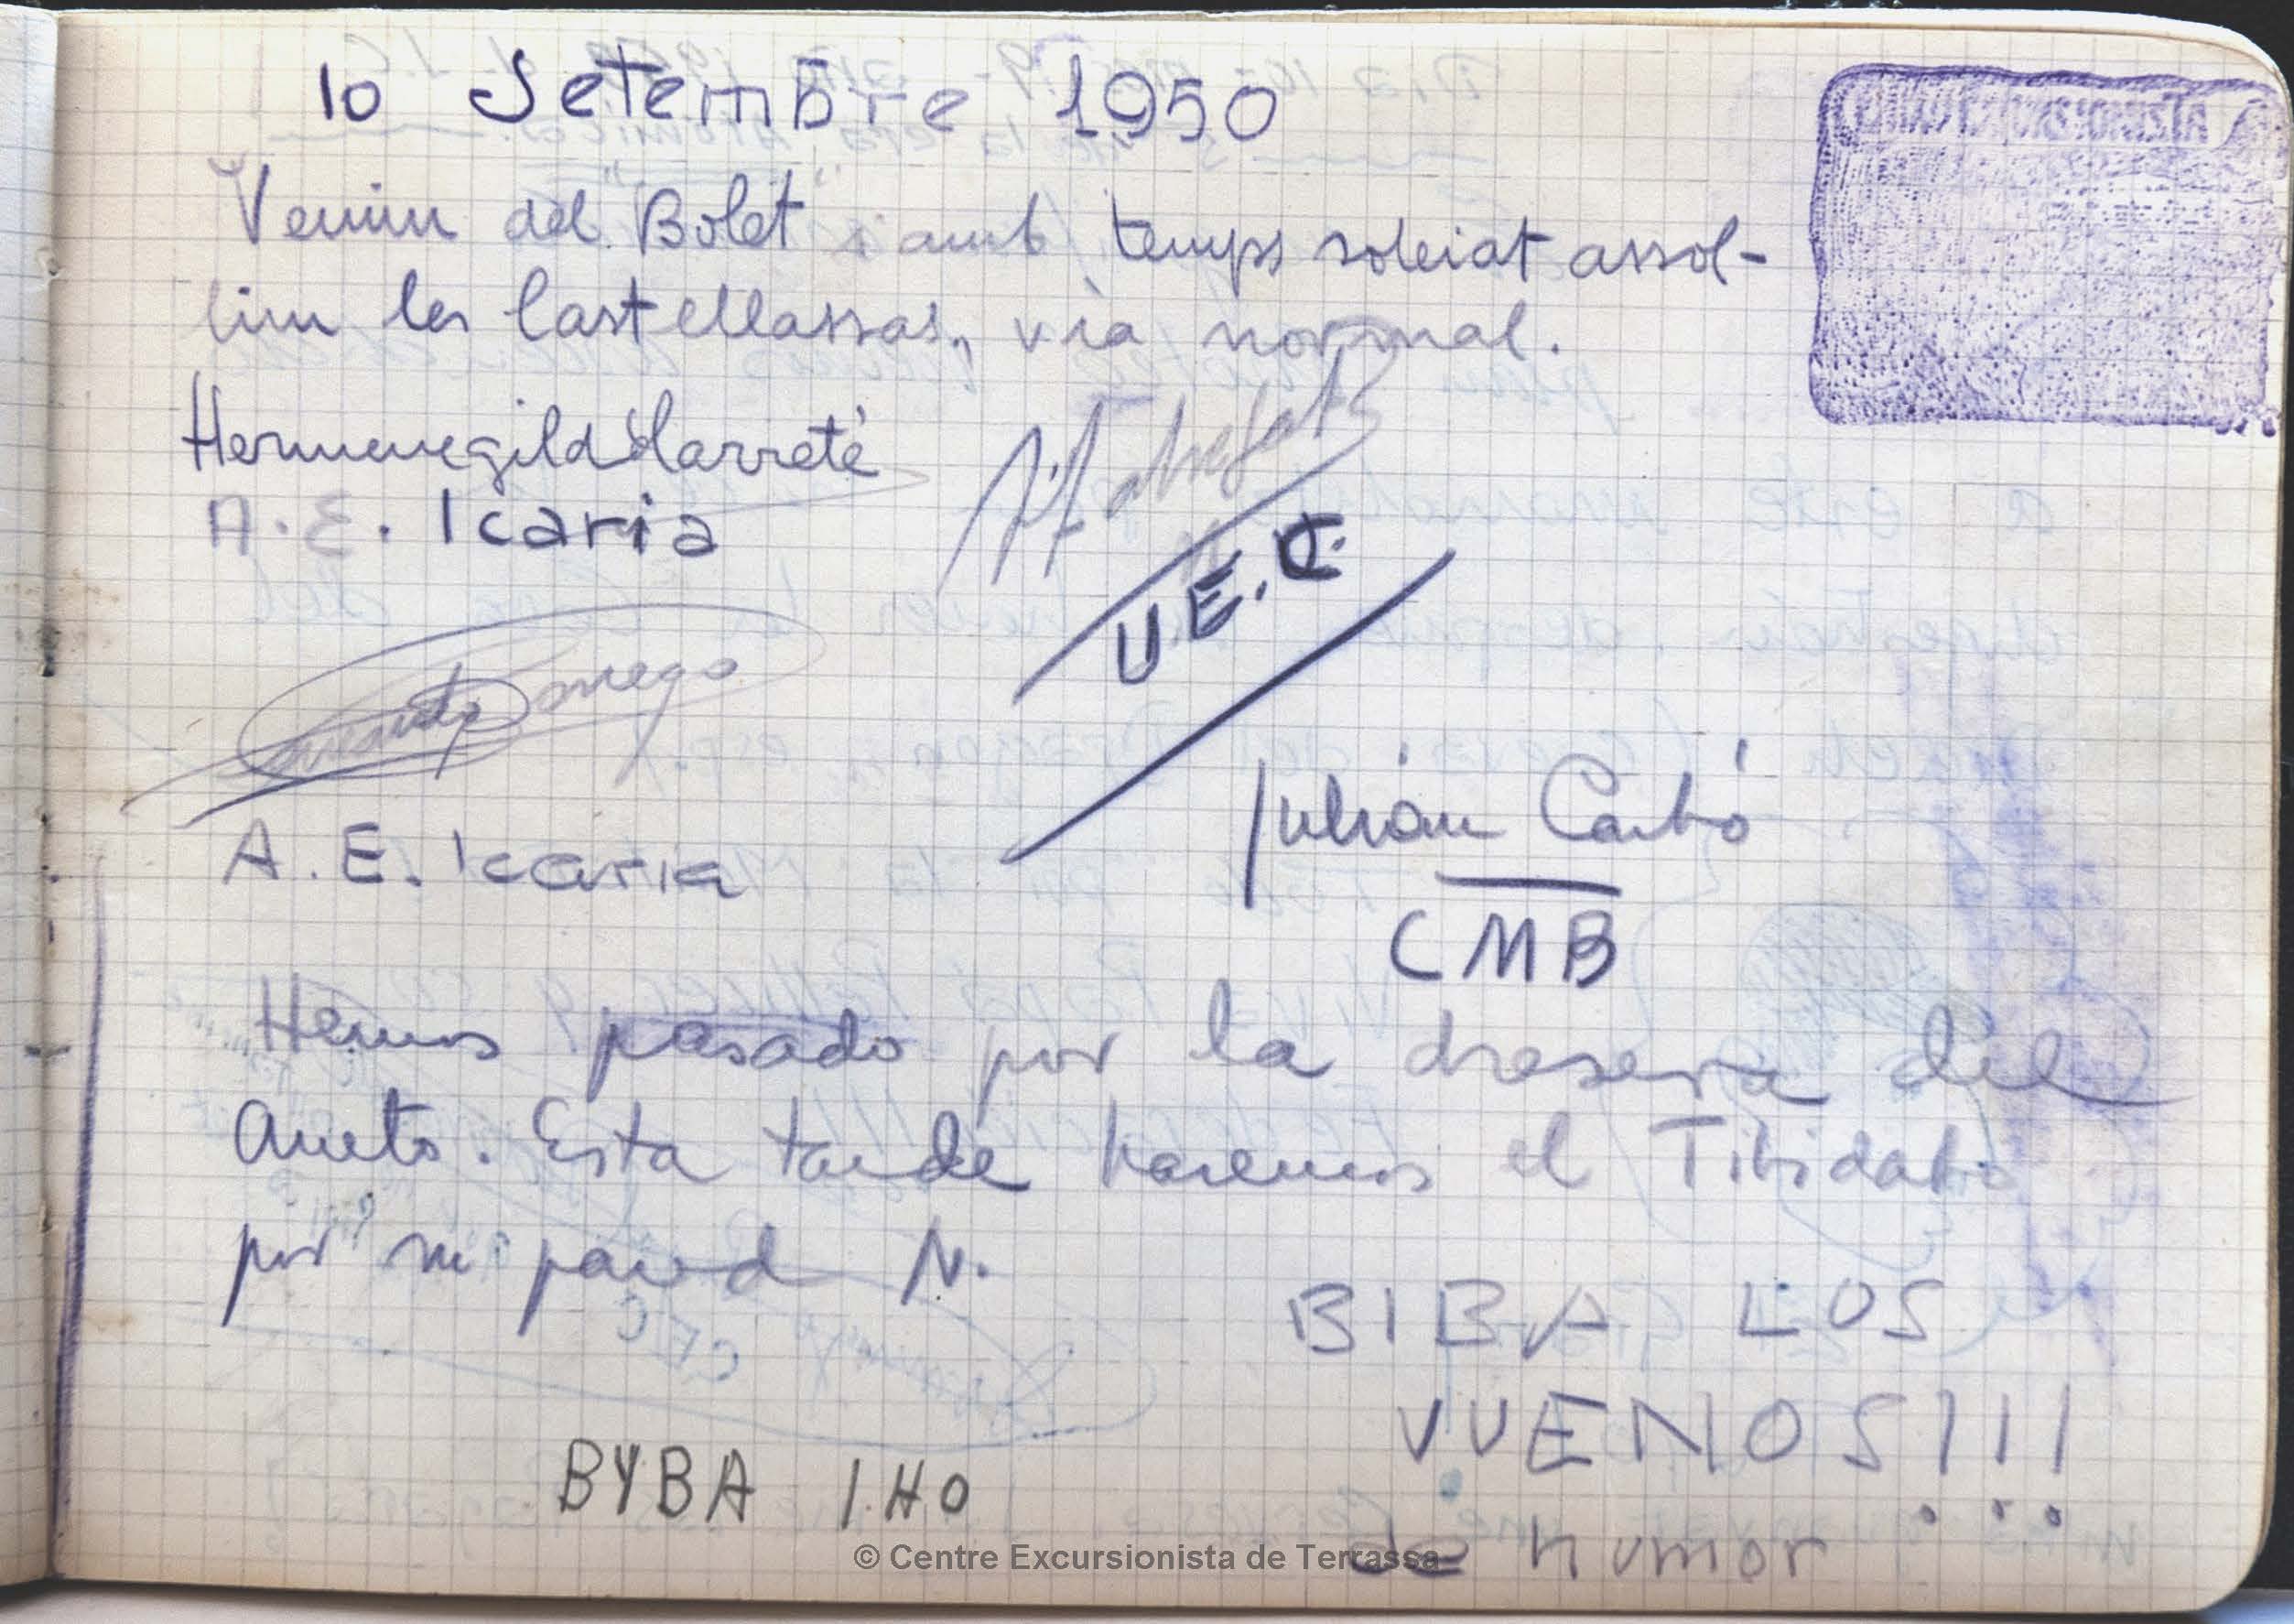 10 Setembre 1950
Venim del Bolet i amb temps soleiat assol-
lim les Castellassas, via normal.
Hermenegild Jarreté
A. E. Icaria
U. E. C.
A. E. Icaria
Julián Carbó
CMB
Hemos pasado por la dresera del
Aneto. Esta tarde haremos el Tibidabo
por su pared N.
BIBA LOS
VUENOS!!!
de humor
BYBA IHO
© Centre Excursionista de Terrassa